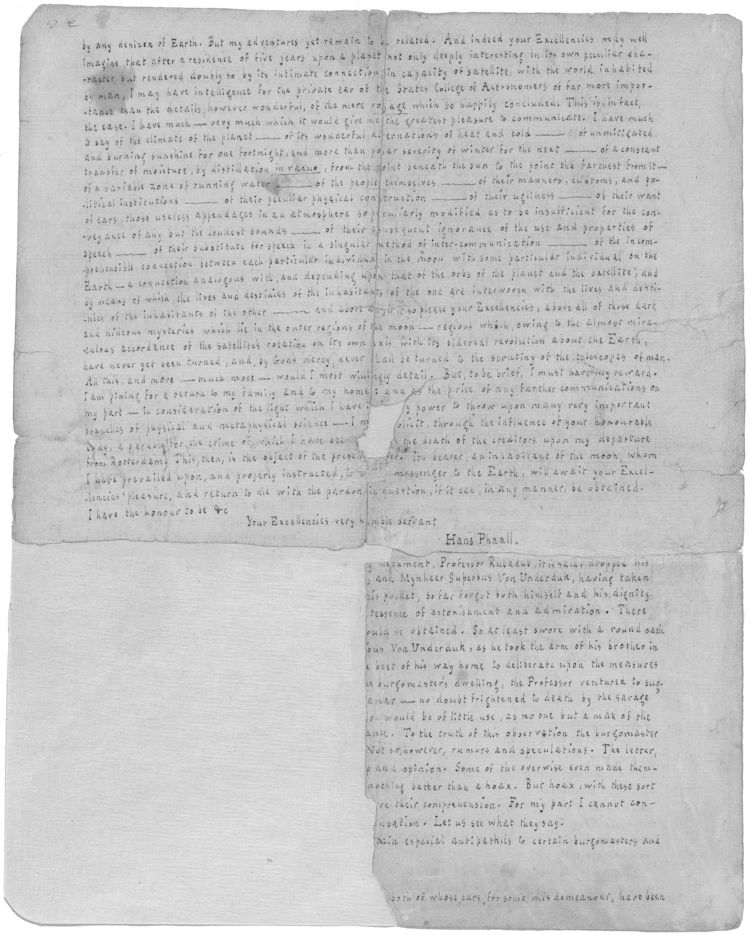 22
by any denizen of Earth. But my adventures yet remain to be related. And indeed your Excellencies may well
imagine that after a residence of five years upon a planet not only deeply interesting in its own peculiar cha-
-racter, but rendered doubly so by its intimate connection, in capacity of satellite, with the world inhabited
by man, I may have intelligence for the private ear of the States College of Astronomers of far more impor-
-tance than the details, however wonderful, of the mere voyage which so happily concluded. This is, in fact,
the case. I have much — very much which it would give me the greatest pleasure to communicate. I have much
to say of the climate of the planet — of its wonderful alternations of heat and cold — of unmitigated
and burning sunshine for one fortnight, and more than polar severity of winter for the next — of a constant
transfer of moisture, by distillation in vacuo, from the point beneath the sun to the point the farthest from it —
of a variable zone of running water — of the people themselves — of their manners, customs, and po-
-litical institutions — of their peculiar physical construction — of their ugliness — of their want
of ears, those useless appendages in an atmosphere so peculiarly modified as to be insufficient for the con-
-veyance of any but the loudest sounds — of their consequent ignorance of the use and properties of
speech — of their substitute for speech in a singular method of inter-communication — of the incom-
-prehensible connection between each particular individual in the moon with some particular individual on the
Earth — a connection analogous with, and depending upon that of the orbs of the planet and the satellite, and
by means of which the lives and destinies of the inhabitants of the one are interwoven with the lives and desti-
-nies of the inhabitants of the other — and above all, if it so please your Excellencies, above all of those dark
and hideous mysteries which lie in the outer regions of the moon — regions which, owing to the almost mira-
-culous accordance of the satellite's rotation on its own axis with its sidereal revolution about the Earth,
have never yet been turned, and, by God's mercy, never shall be turned to the scrutiny of the telescopes of man.
All this, and more — much more — would I most willingly detail. But, to be brief, I must have my reward.
I am pining for a return to my family and to my home: and as the price of any farther communications on
my part — in consideration of the light which I have y power to throw upon many very important
branches of physical and metaphysical science — I m olicit, through the influence of your honourable
body, a pardon for the crime of which I have been the death of the creditors upon my departure
from Rotterdam. This, then, is the object of the prese er. Its bearer, an inhabitant of the moon, whom
I have prevailed upon, and properly instructed, to messenger to the Earth, will await your Excel-
-lencies' pleasure, and return to me with the pardon in question, if it can, in any manner, be obtained.
I have the honour to be &c
Your Excellencies very humble servant
Hans Phaall.
document, Professor Rubadub, it is said, dropped his
and Mynheer Superbus Von Underduk, having taken
his pocket, so far forgot both himself and his dignity
tessence of astonishment and admiration. There
ould be obtained. So at least swore with a round oath
ous Von Underduk, as he took the arm of his brother in
e best of his way home to deliberate upon the measures
burgomaster's dwelling, the Professor ventured to sug-
— no doubt frightened to death by the savage
would be of little use, as no one but a man of the
To the truth of this observation the burgomaster
Not so, however, rumors and speculations. The letter,
and opinion. Some of the overwise even made them-
nothing better than a hoax. But hoax, with these sort
ve their comprehension. For my part I cannot con-
usation. Let us see what they say.
tain especial antipathies to certain burgomasters and
both of whose ears, for some misdemeanor, have been